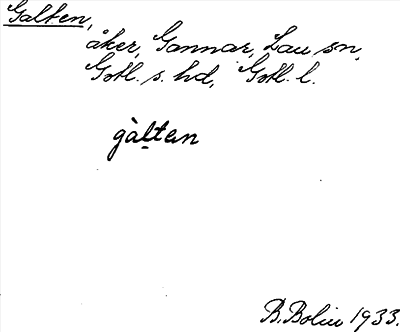 Galten,
åker, Gannar, Lau sn,
Gotl. s. hd, Gotl. l.
gàl̠tan
B. Bolin 1933.